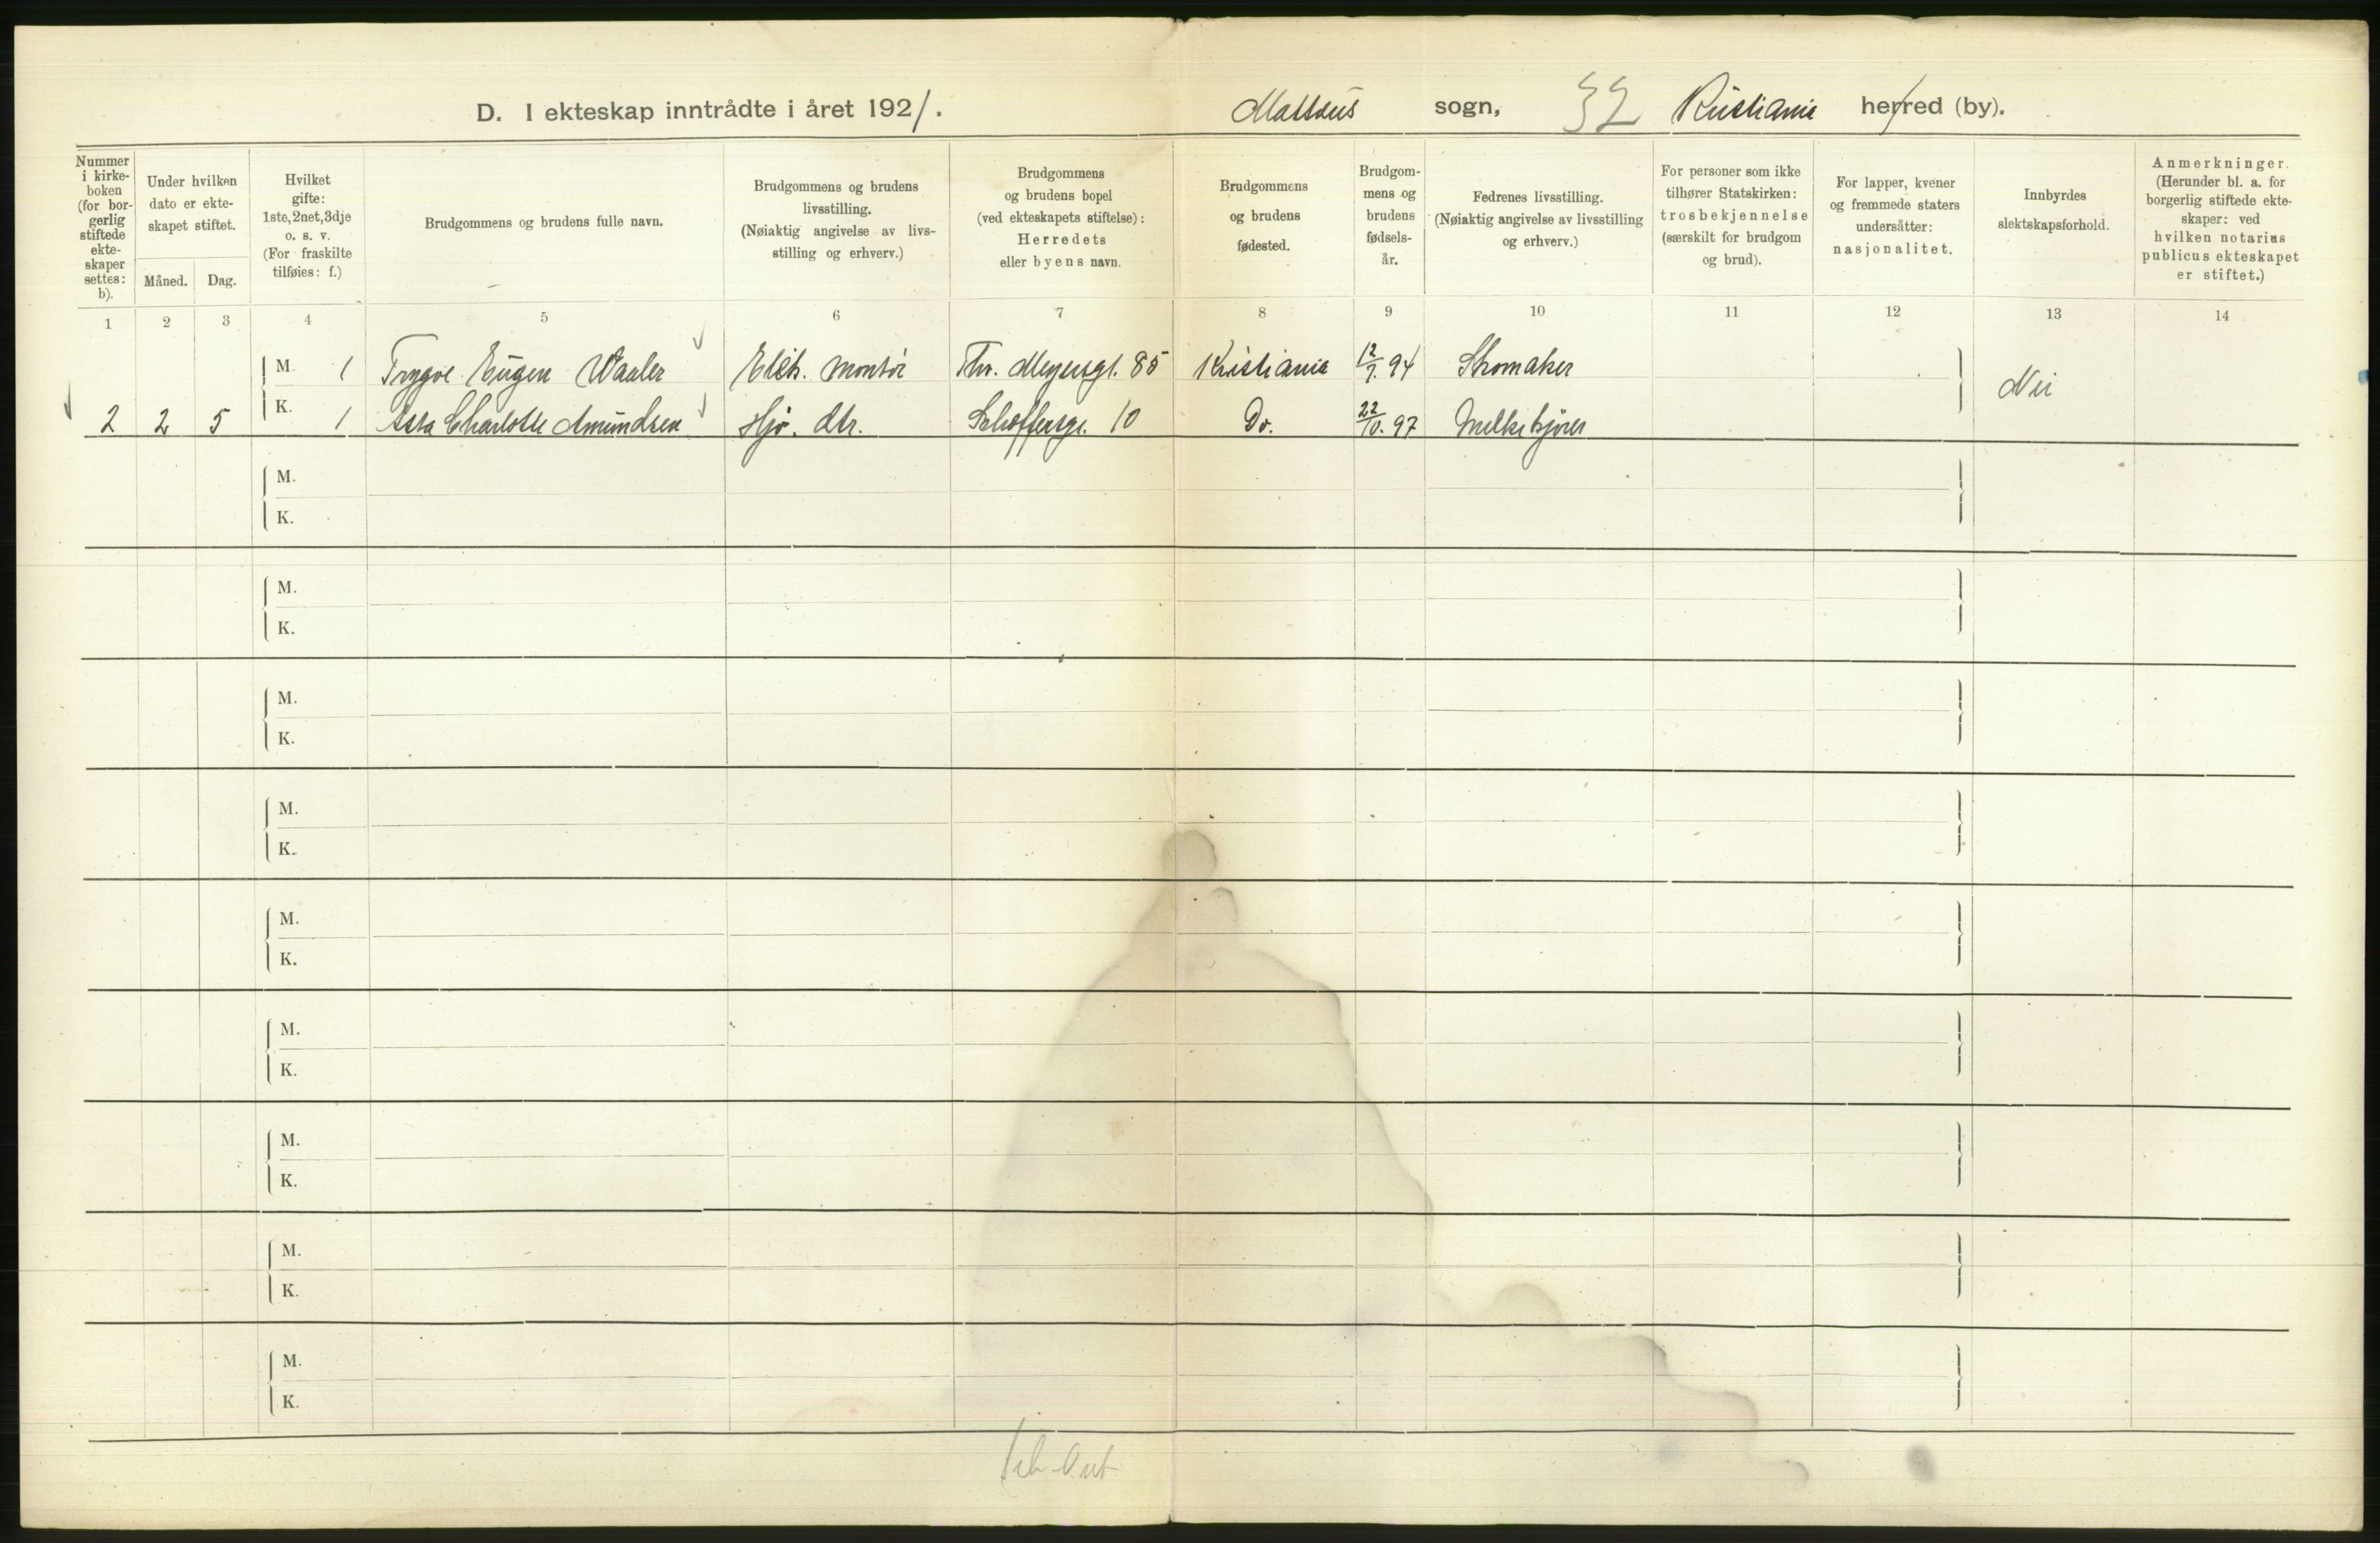 D. I ekteskap inntrådte i året 1921. Mattæus sogn, 32 Kristiania herred (by).
Nummer i kirke-boken (for bor-gerlig stiftede ekte-skaper settes: b).
Under hvilken dato er ekte-skapet stiftet.
Måned. Dag.
Hvilket gifte: 1ste, 2net, 3dje o. s. v. (For fraskilte tilføies: f.)
Brudgommens og brudens fulle navn.
Brudgommens og brudens livsstilling. (Nøiaktig angivelse av livs-stilling og erhverv.)
Brudgommens og brudens bopel (ved ekteskapets stiftelse): Herredets eller byens navn.
Brudgommens og brudens fødested.
Brudgom-mens og brudens fødsels-år.
Fedrenes livsstilling. (Nøiaktig angivelse av livsstilling og erhverv.)
For personer som ikke tilhører Statskirken: trosbekjennelse (særskilt for brudgom og brud).
For lapper, kvener og fremmede staters undersåtter: nasjonalitet.
Innbyrdes slektskapsforhold.
Anmerkninger. (Herunder bl. a. for borgerlig stiftede ekte-skaper: ved hvilken notarius publicus ekteskapet er stiftet.)
1 2 3 4 5 6 7 8 9 10 11 12 13 14
M. 1 Trygve Eugen Waaler Elek. montør Thv. Meyersgt. 85 Kristiania 12/7. 94 Skomaker
Nei
2 2 5 K. 1 Asta Charlotte Amundsen Hjv. dtr. Schoffersgt. 10 Do. 22/10. 97 Melkekjører
M.
K.
M.
K.
M.
K.
M.
K.
M.
K.
M.
K.
M.
K.
M.
K.
M.
K.